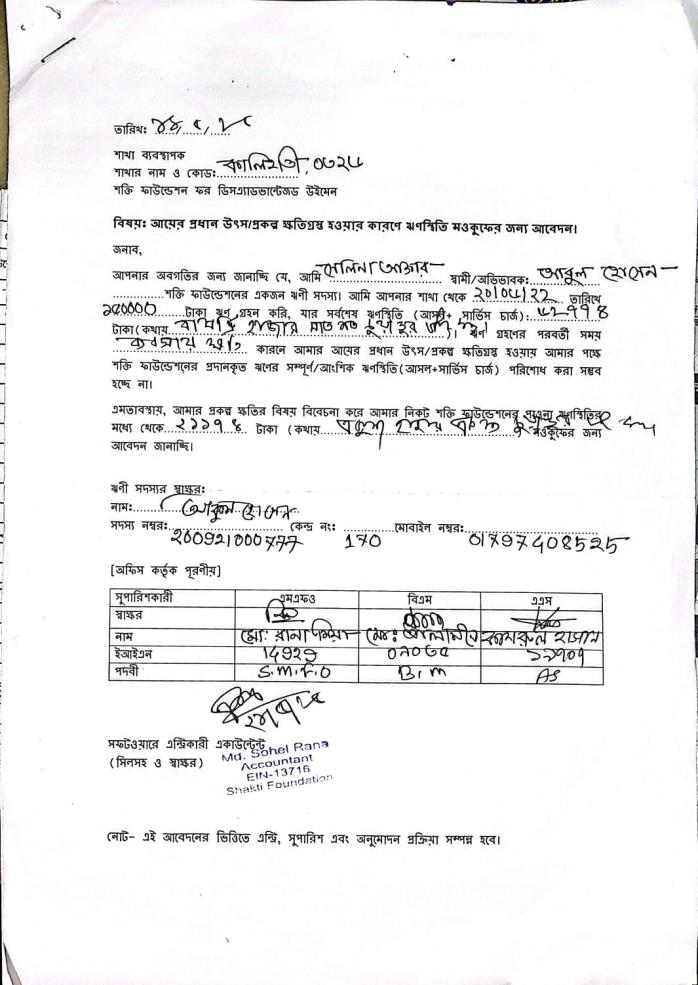 তারিখ:
শাখা ব্যবস্থাপক
শাখার নাম ও কোড: কালিহাতী, ০৩২৮
শক্তি ফাউন্ডেশন ফর ডিসএ্যাডভান্টেজড উইমেন
বিষয়: আয়ের প্রধান উৎস/প্রকল্প ক্ষতিগ্রস্থ হওয়ার কারণে ঋণস্থিতি মওকুফের জন্য আবেদন।
জনাব,
আপনার অবগতির জন্য জানাচ্ছি যে, আমি সেলিনা আক্তার স্বামী/অভিভাবক: আবুল হোসেন
শক্তি ফাউন্ডেশনের একজন ঋণী সদস্য। আমি আপনার শাখা থেকে তারিখে
টাকা ঋণ গ্রহন করি, যার সর্বশেষ ঋণস্থিতি (আসল+ সার্ভিস চার্জ):
টাকা(কথায় হাজার সাত শত )। ঋণ গ্রহণের পরবর্তী সময়
ব্যবসায় ক্ষতি কারনে আমার আয়ের প্রধান উৎস/প্রকল্প ক্ষতিগ্রস্থ হওয়ায় আমার পক্ষে
শক্তি ফাউন্ডেশনের প্রদানকৃত ঋণের সম্পূর্ণ/আংশিক ঋণস্থিতি(আসল+সার্ভিস চার্জ) পরিশোধ করা সম্ভব
হচ্ছে না।
এমতাবস্থায়, আমার প্রকল্প ক্ষতির বিষয় বিবেচনা করে আমার নিকট শক্তি ফাউন্ডেশনের পাওনা ঋণস্থিতির
মধ্যে থেকে টাকা (কথায় একুশ হাজার একশত মওকুফের জন্য
আবেদন জানাচ্ছি।
ঋণী সদস্যর স্বাক্ষর:
নাম: আবুল হোসেন
সদস্য নম্বর: কেন্দ্র নং: মোবাইল নম্বর:
200921000777 170 01797408525
[অফিস কর্তৃক পূরণীয়]
সুপারিশকারী এমএফও বিএম এএস
স্বাক্ষর
নাম মো: রানা মিয়া মো: আলামীন কামরুল হাসান
ইআইএন 14929
পদবী S.M.F.O B.M AS
সফটওয়ারে এন্ট্রিকারী একাউন্টেন্ট
(সিলসহ ও স্বাক্ষর)
Md. Sohel Rana
Accountant
EIN-13716
Shakti Foundation
নোট- এই আবেদনের ভিত্তিতে এন্ট্রি, সুপারিশ এবং অনুমোদন প্রক্রিয়া সম্পন্ন হবে।